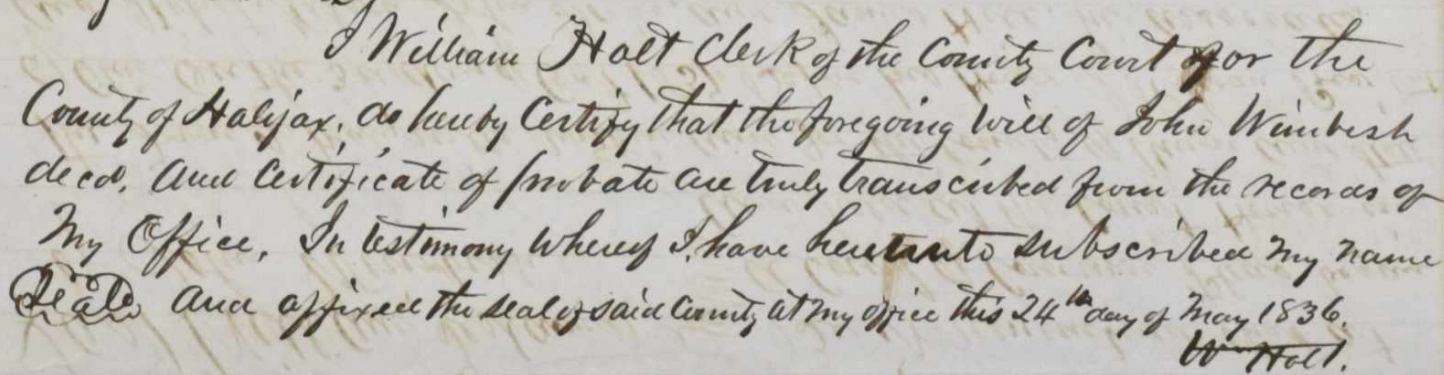 I William Holt Clerk of the County Court for the
County of Halifax, do hereby Certify that the foregoing will of John Wimbish
decd, and Certificate of probate are truly transcribed from the records of
My Office, In testimony whereof I have hereunto subscribed my name
Seale and affixed the seal of said County at my office this 24th day of May 1836.
Wm Holt.